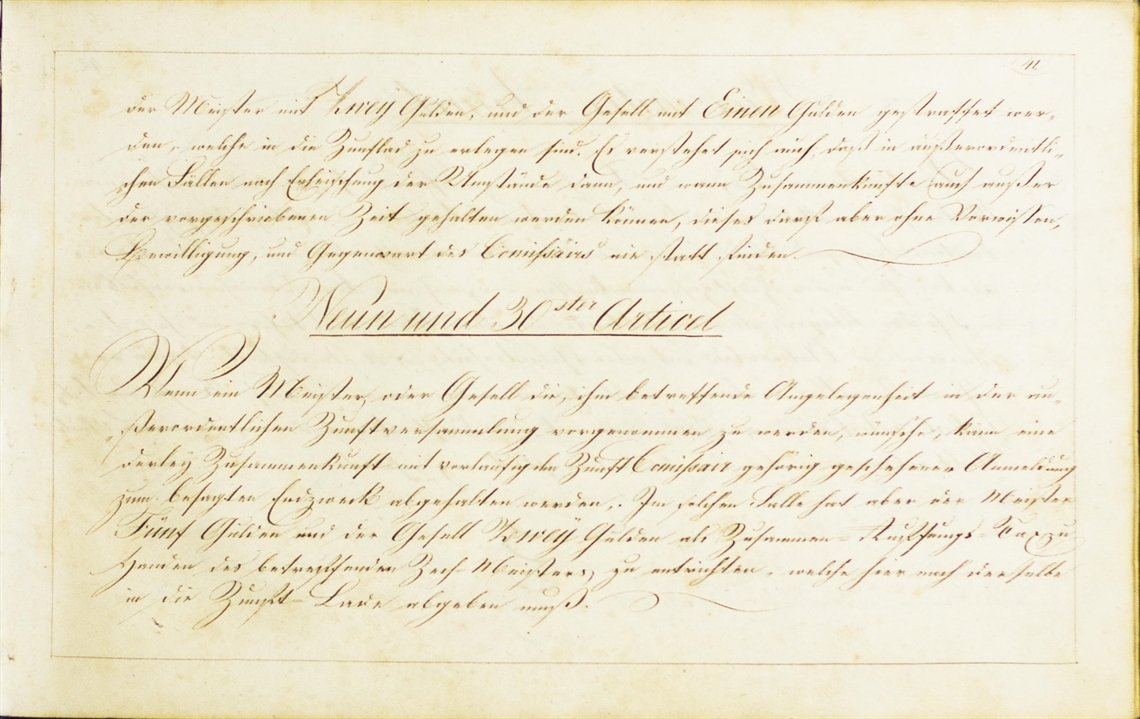 41
der Meister mit Zwey Gulden, und der Gesell mit Einen Gulden gestraffet wer-
den, welche in die Zunftlad zu erlegen sind. Es verstehet sich auch, daß in außerordentli-
chen Fällen nach Erheischung der Umstände dann, und wann Zusammenkünfte auch außer
der vorgeschriebenen Zeit gehalten werden können, dieses darf aber ohne Vorwissen,
Bewilligung, und Gegenwart des Comissairs nie statt finden.
Neun und 30ster Articel
Wenn ein Meister, oder Gesell die, ihm betreffende Angelegenheit in der au-
ßerordentlichen Zunftversammlung vorgenommen zu werden, wünsche, kann eine
derley Zusammenkunft mit vorläufig den Zunft Comissair gehörig geschehener Anmeldung
zum besagten Endzweck abgehalten werden. Im solchen Falle hat aber der Meister
Fünf Gulden und der Gesell Zwey Gulden als Zusammen-Ruffungs-Taxzu
Handen des betreffenden Zech-Meisters zu entrichten, welche hier nach derselbe
in die Zunft-Lade abgeben muß.